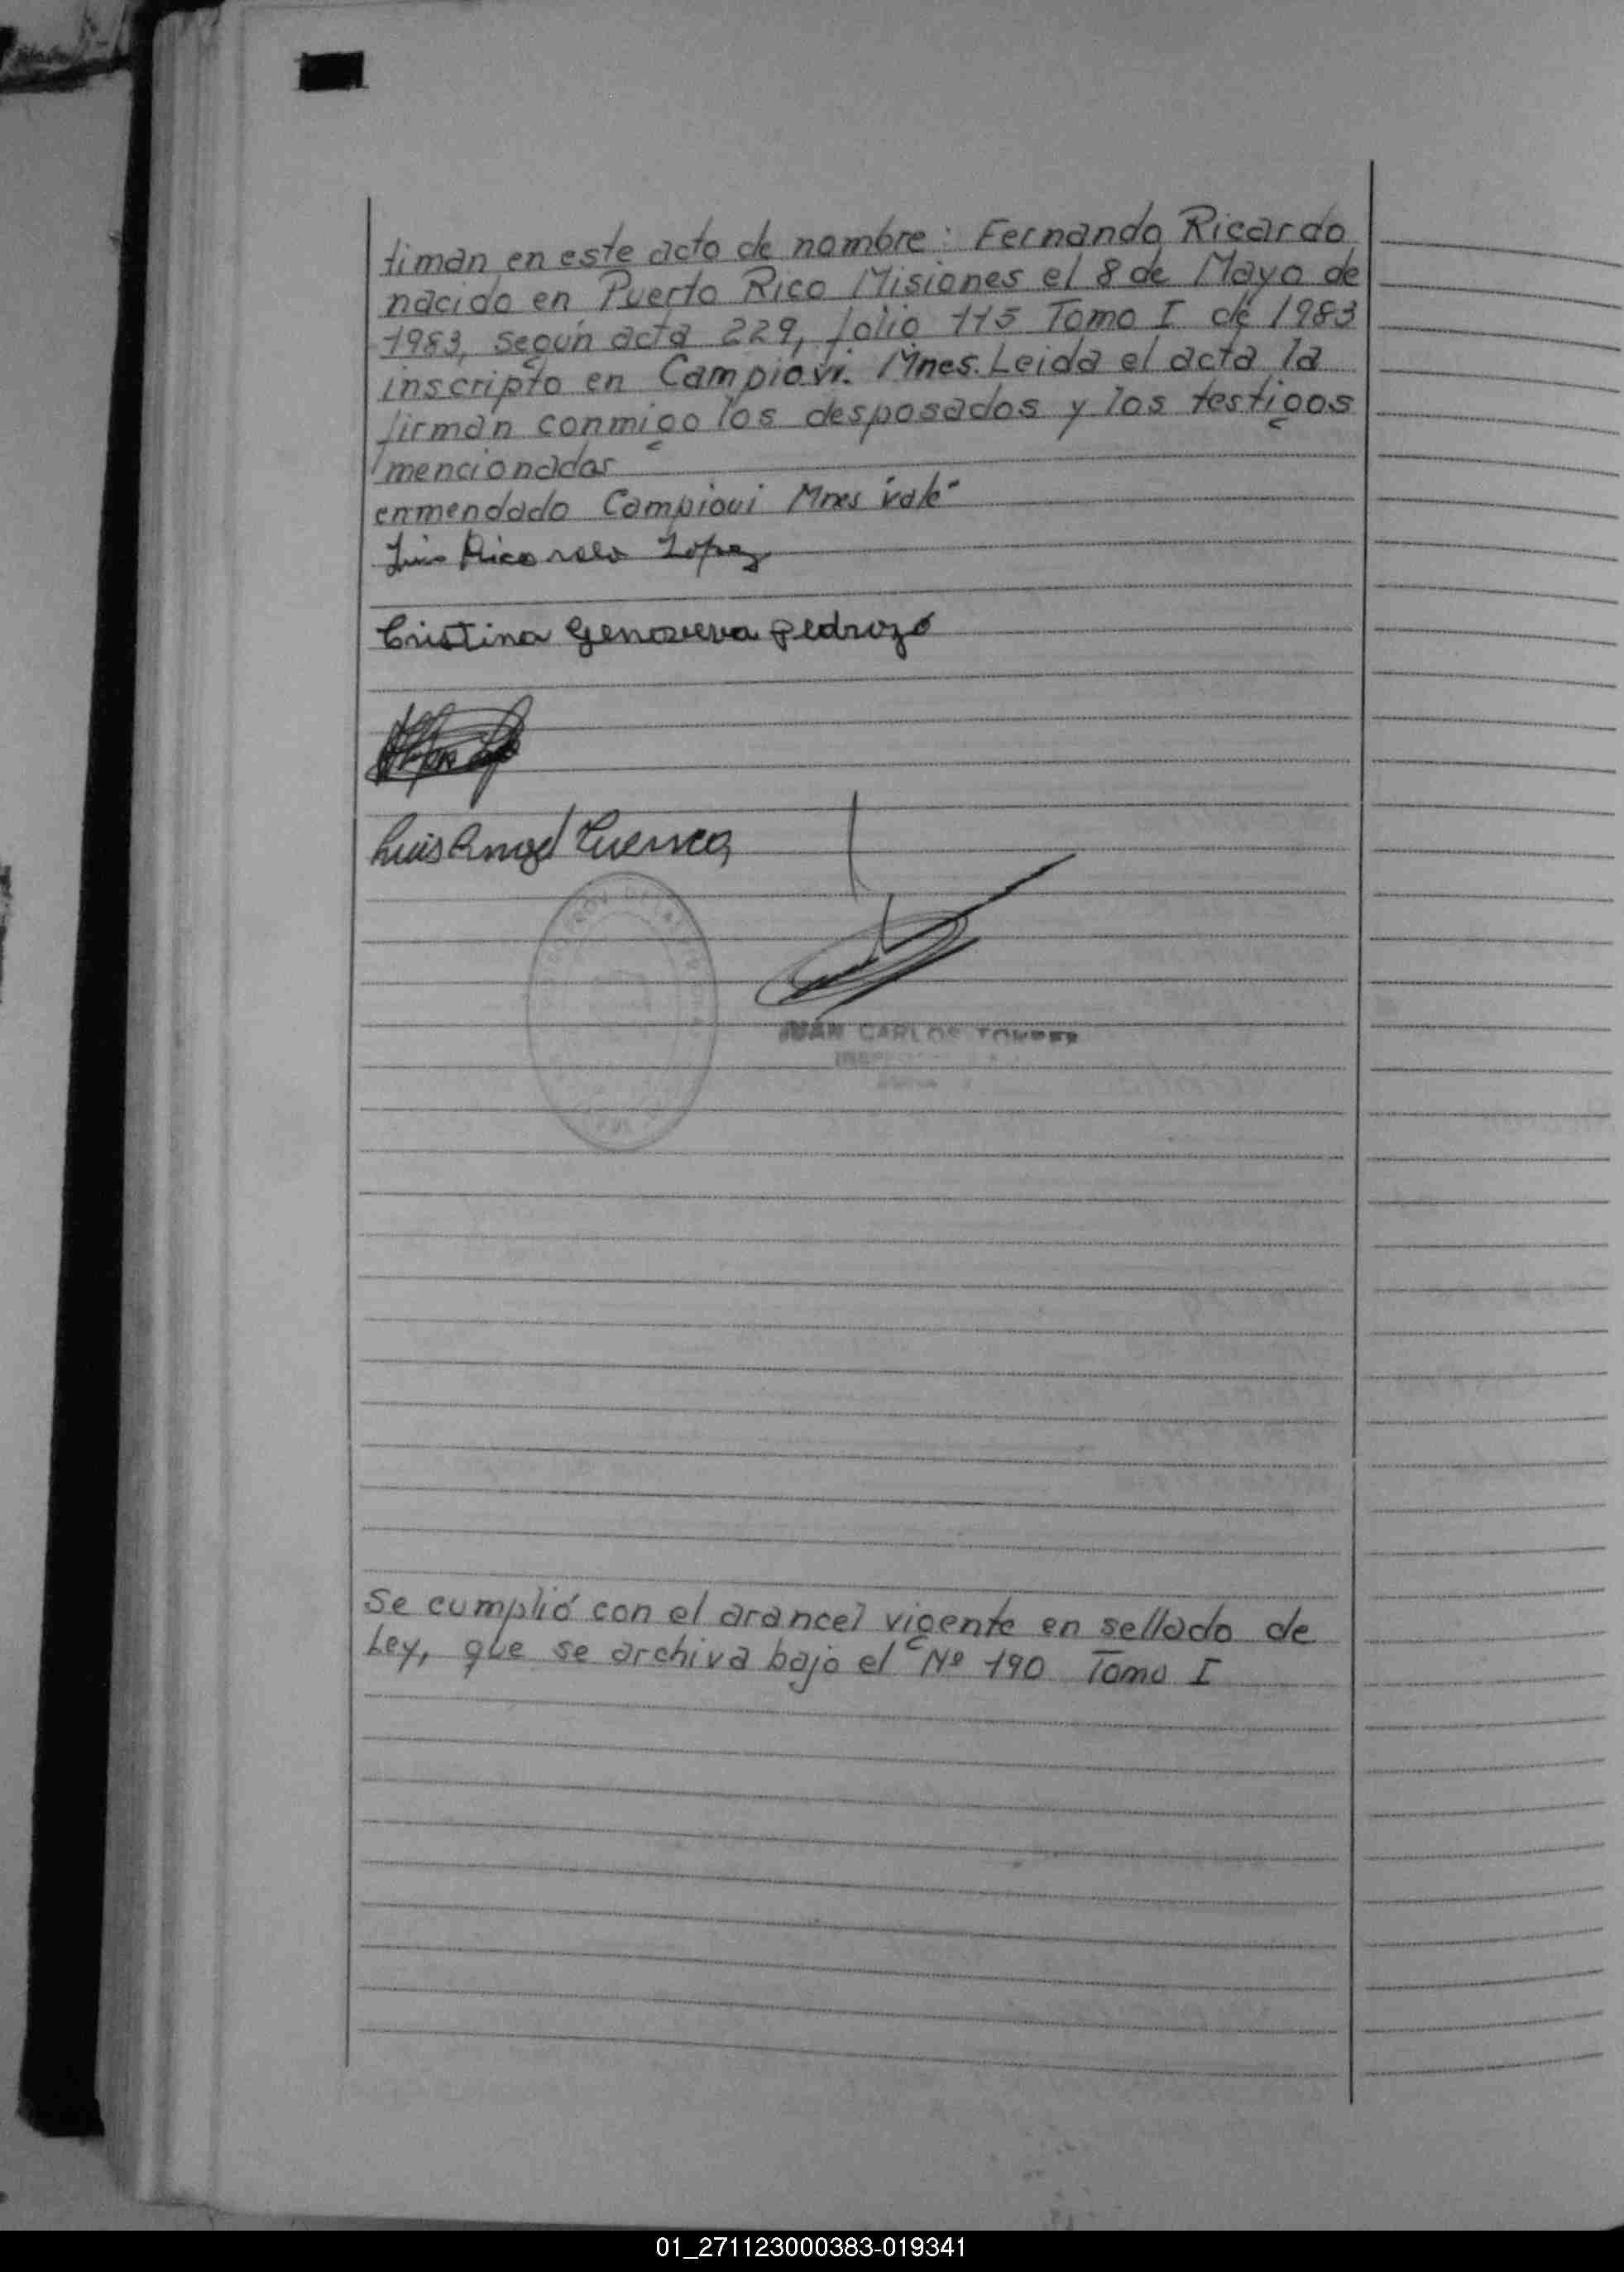 timan en este acto de nombre: Fernando Ricardo,
nacido en Puerto Rico Misiones el 8 de Mayo de
1983, según acta 229, folio 115 Tomo I de 1983
inscripto en Campiovi. Mnes. Leida el acta la
firman conmigo los desposados y los testigos
mencionados
enmendado Campiovi Mnes "vale"
Luis Ricardo Lopez
Cristina Genoveva Pedrozo
Luis Angel Cuenca
JUAN CARLOS TORRES
Se cumplió con el arancel vigente en sellado de
Ley, que se archiva bajo el Nº 190 Tomo I
01_271123000383-019341